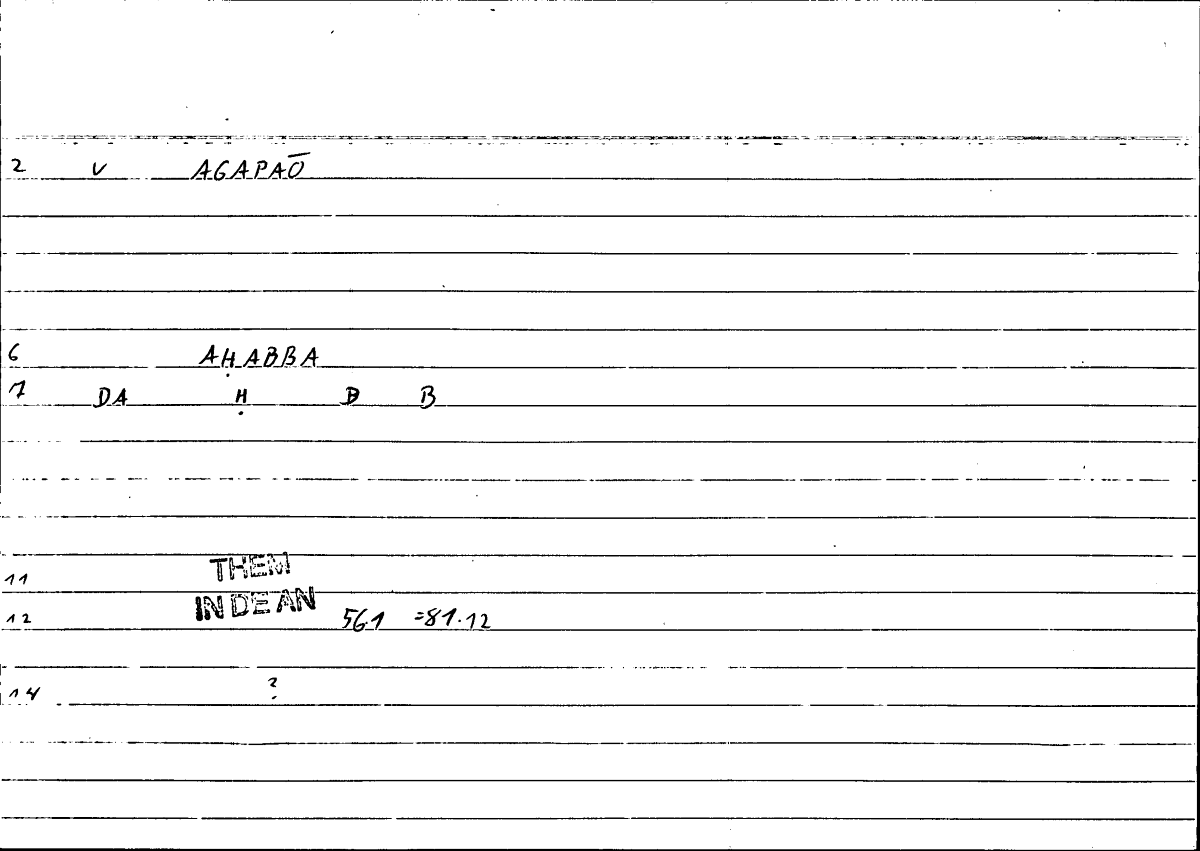 2 V AGAPAŌ
6 AḤABBA
7 DA Ḥ B B
11 THEM
12 IN DE AN 561 =81.12
14 ?